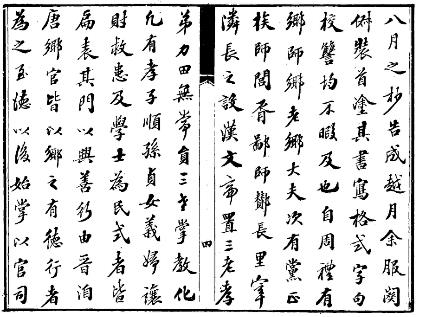 八月之杪告成越月余服闋
俶裝首塗其書寫格式字句
校讐均不暇及也自周禮有
鄉師鄉老鄉大夫次有黨正
族師閭胥鄙師酇長里宰
隣長之設漢文帝置三老孝
四
第力田無常員三老掌教化
凡有孝子順孫貞女義婦讓
財救患及學士為民式者皆
扁表其門以興善行由晋洎
唐鄉官皆以鄉之有德行者
為之至德以後始掌以官司